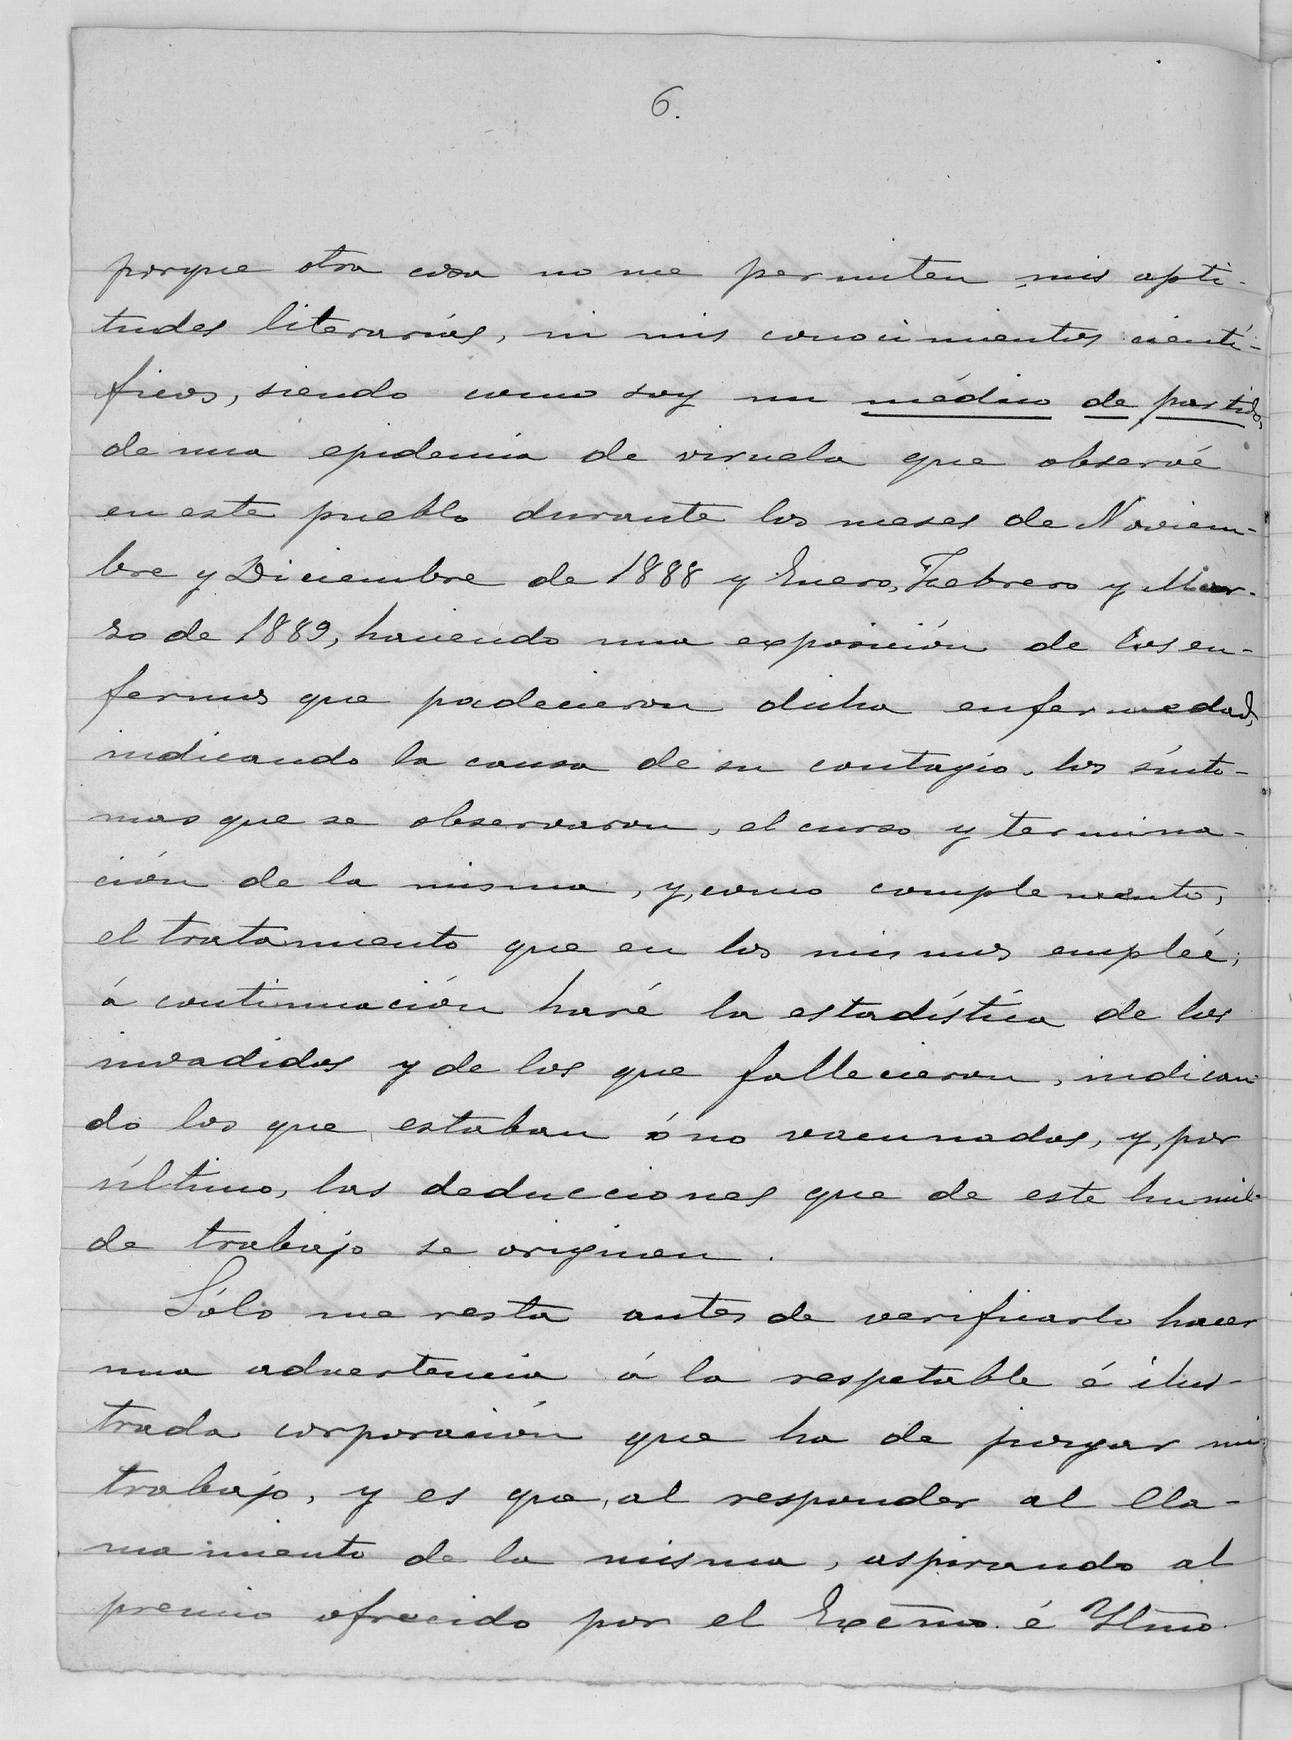 6.
porque otra cosa no me permiten mis apti-
tudes literarias, ni mis conocimientos cientí-
ficos, siendo como soy un médico de partido,
de una epidemia de viruela que observé
en este pueblo durante los meses de Noviem-
bre y Diciembre de 1888 y Enero, Febrero y Mar-
zo de 1889, haciendo una exposición de los en-
fermos que padecieron dicha enfermedad,
indicando la causa de su contagio, los sínto-
mas que se observaron, el curso y termina-
ción de la misma, y, como complemento,
el tratamiento que en los mismos empleé;
á continuación haré la estadística de los
invadidos y de los que fallecieron, indican-
do los que estaban ó no vacunados, y, por
último, las deducciones que de este humil-
de trabajo se originen.
Sólo me resta antes de verificarlo hacer
una advertencia á la respetable é ilus-
trada corporación que ha de juzgar mi
trabajo, y es que, al responder al lla-
mamiento de la misma, aspirando al
premio ofrecido por el Excmo. é Yltmo.